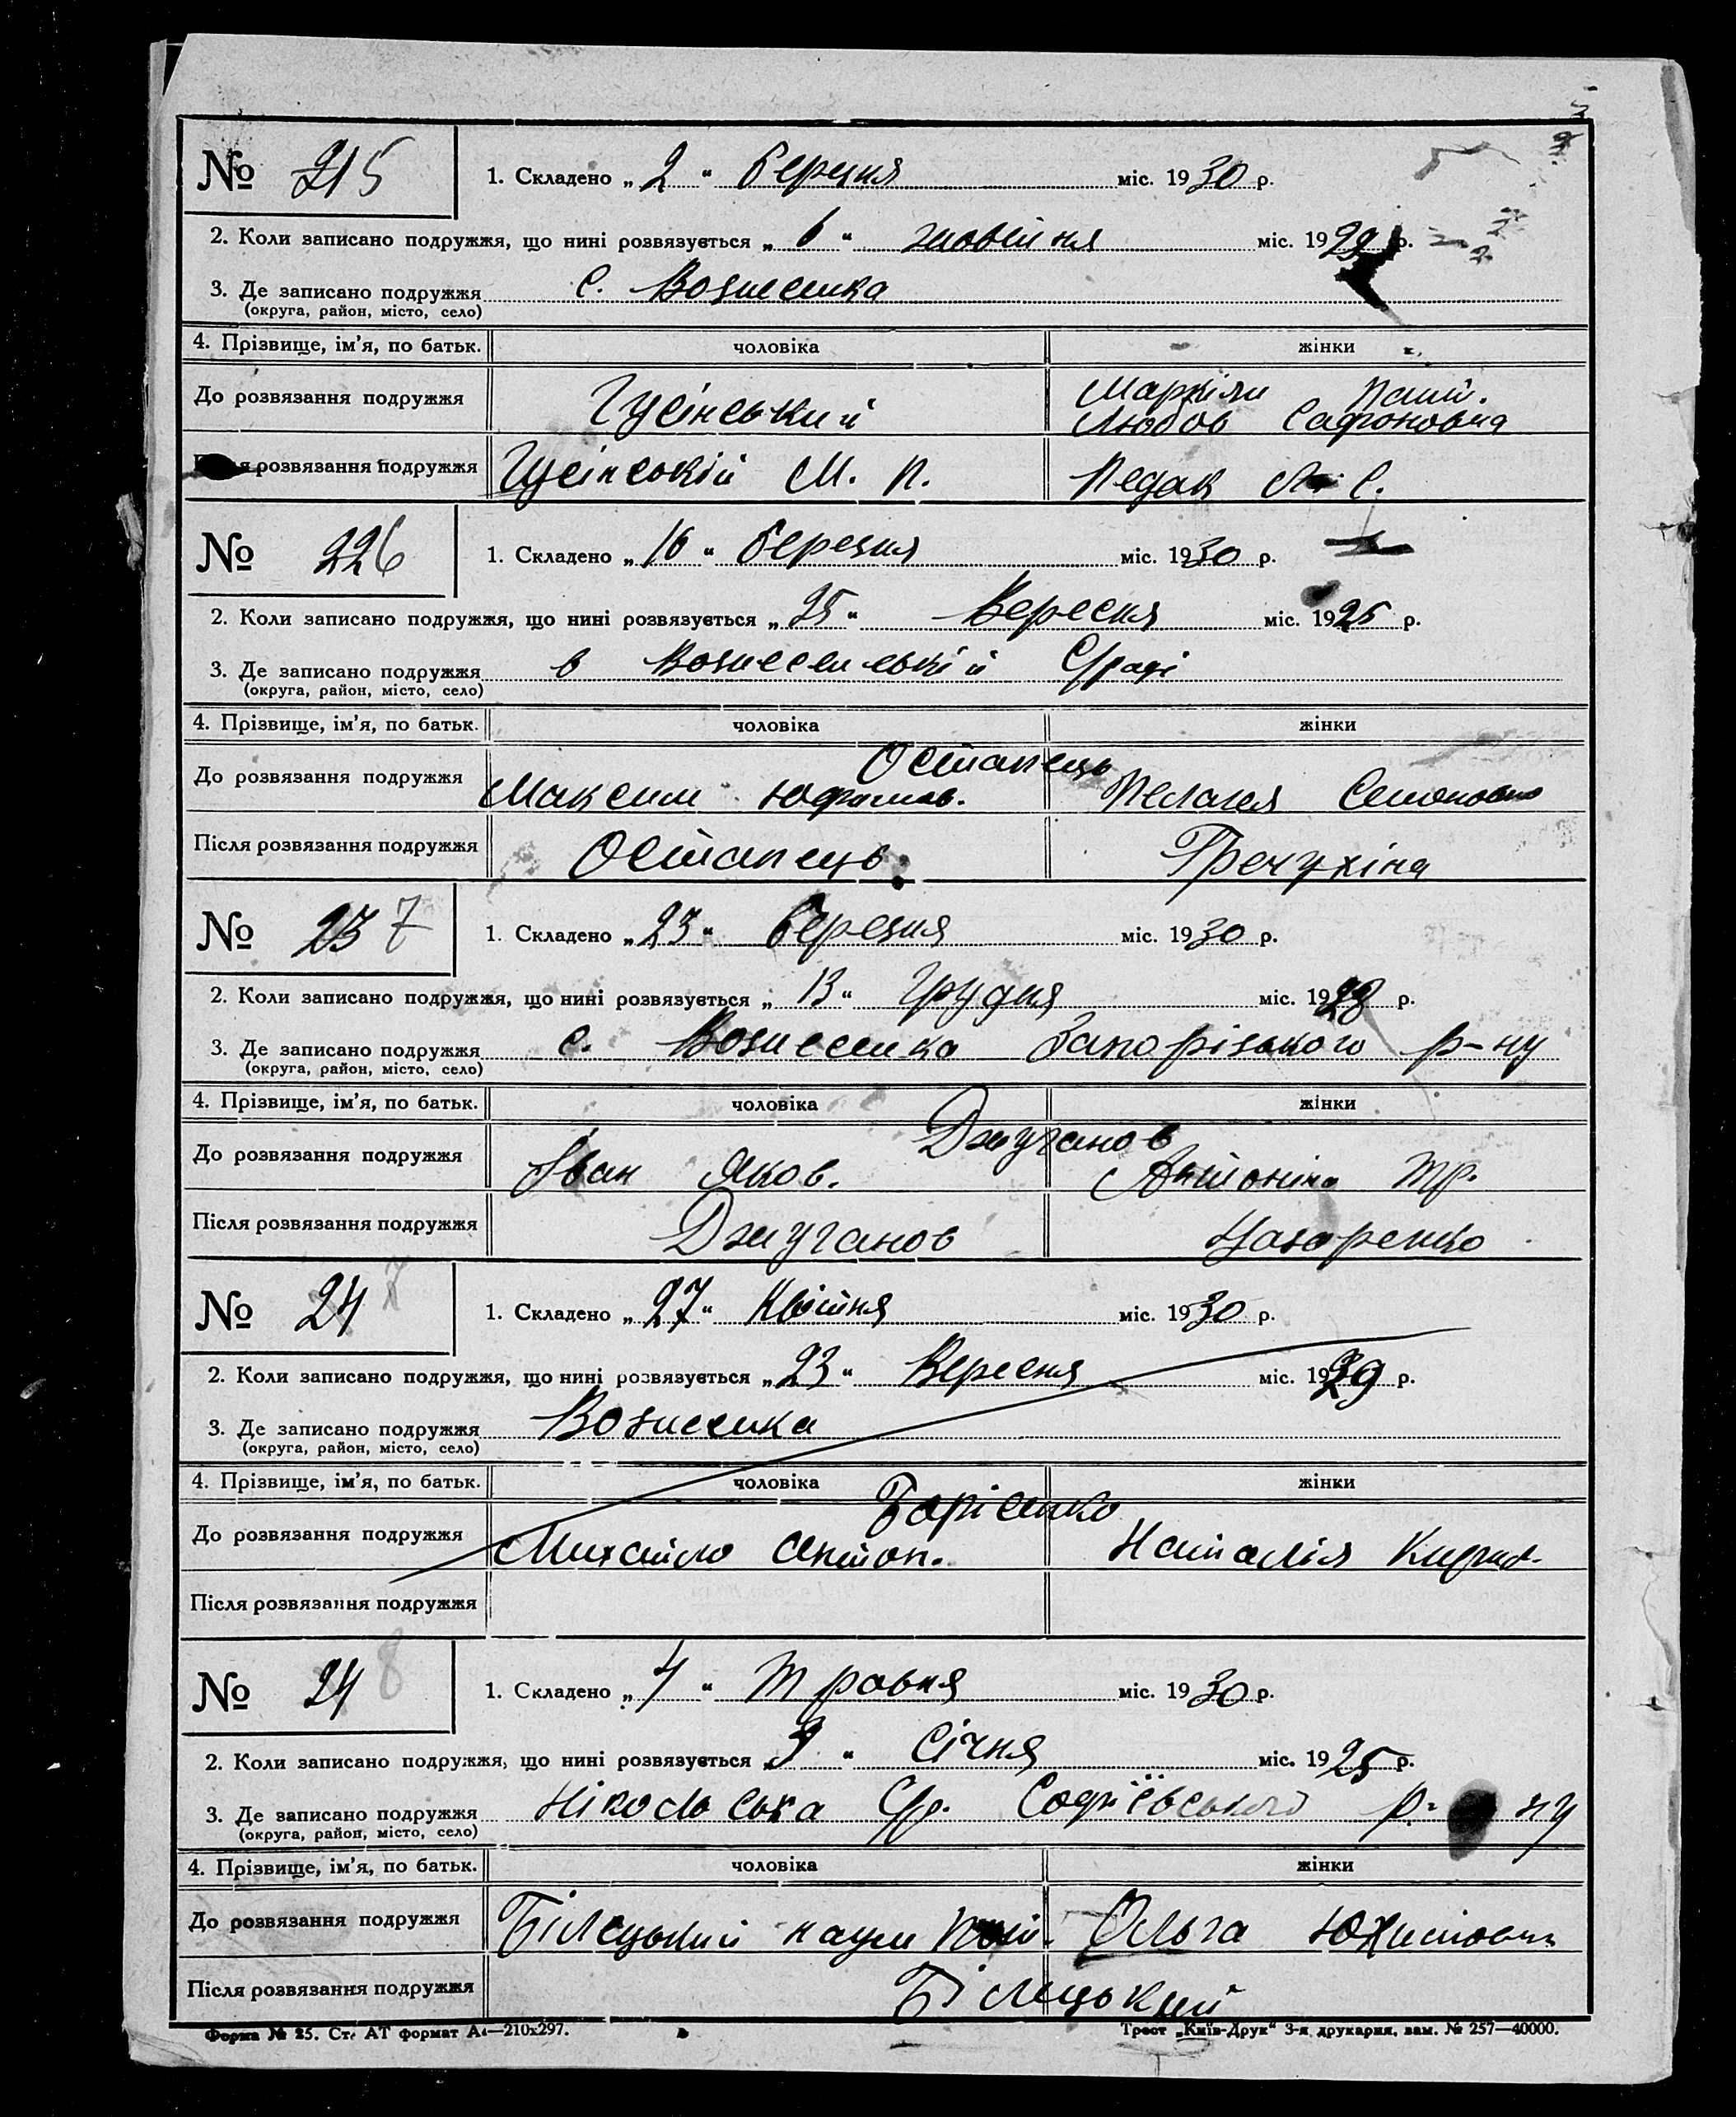 № 215
1. Складено „ 2 “ березня міс. 1930 р.
2. Коли записано подружжя, що нині розвязується „ 6 “ жовтня міс. 1929 р.
3. Де записано подружжя с. Вознесенка
(округа, район, місто, село)
4. Прізвище, ім'я, по батьк. чоловіка жінки
До розвязання подружжя Гусінський Любов Сафоновна
розвязання подружжя Гусінській М. П. Педак Л. С.
№ 226
1. Складено „ 16 “ березня міс. 1930 р.
2. Коли записано подружжя, що нині розвязується „ 25 “ Вересня міс. 1925 р.
3. Де записано подружжя в Вознесенській С/раді
(округа, район, місто, село)
4. Прізвище, ім'я, по батьк. чоловіка жінки
Остапець
До розвязання подружжя Максим Юфимов. Пелагея Семоновна
Після розвязання подружжя Остапець Гречухіна
№ 237
1. Складено „ 23 “ березня міс. 1930 р.
2. Коли записано подружжя, що нині розвязується „ 13 “ Грудня міс. 1928 р.
3. Де записано подружжя с. Вознесенка Запорізького р-ну
(округа, район, місто, село)
4. Прізвище, ім'я, по батьк. чоловіка жінки
Джуганов
До розвязання подружжя Іван Яков. Антоніна Тр.
Після розвязання подружжя Джуганов Назаренко
№ 24 7
1. Складено „ 27 “ Квітня міс. 1930 р.
2. Коли записано подружжя, що нині розвязується „ 23 “ Вересня міс. 1929 р.
3. Де записано подружжя Вознесенка
(округа, район, місто, село)
4. Прізвище, ім'я, по батьк. чоловіка жінки
Борісенко
До розвязання подружжя Михайло Антон. Наталія Кирил.
Після розвязання подружжя
№ 24 8
1. Складено „ 4 “ Травня міс. 1930 р.
2. Коли записано подружжя, що нині розвязується „ 9 “ Січня міс. 1925 р.
3. Де записано подружжя Нікольська С/р. Софіївського р-ну
(округа, район, місто, село)
4. Прізвище, ім'я, по батьк. чоловіка жінки
До розвязання подружжя Білецький Наум Ольга Юхимовна
Після розвязання подружжя Білецький
Форма № 25. Ст. АТ формат А₄—210x297. Трест „Київ-Друк“ 3-я друкарня, зам. № 257—40000.